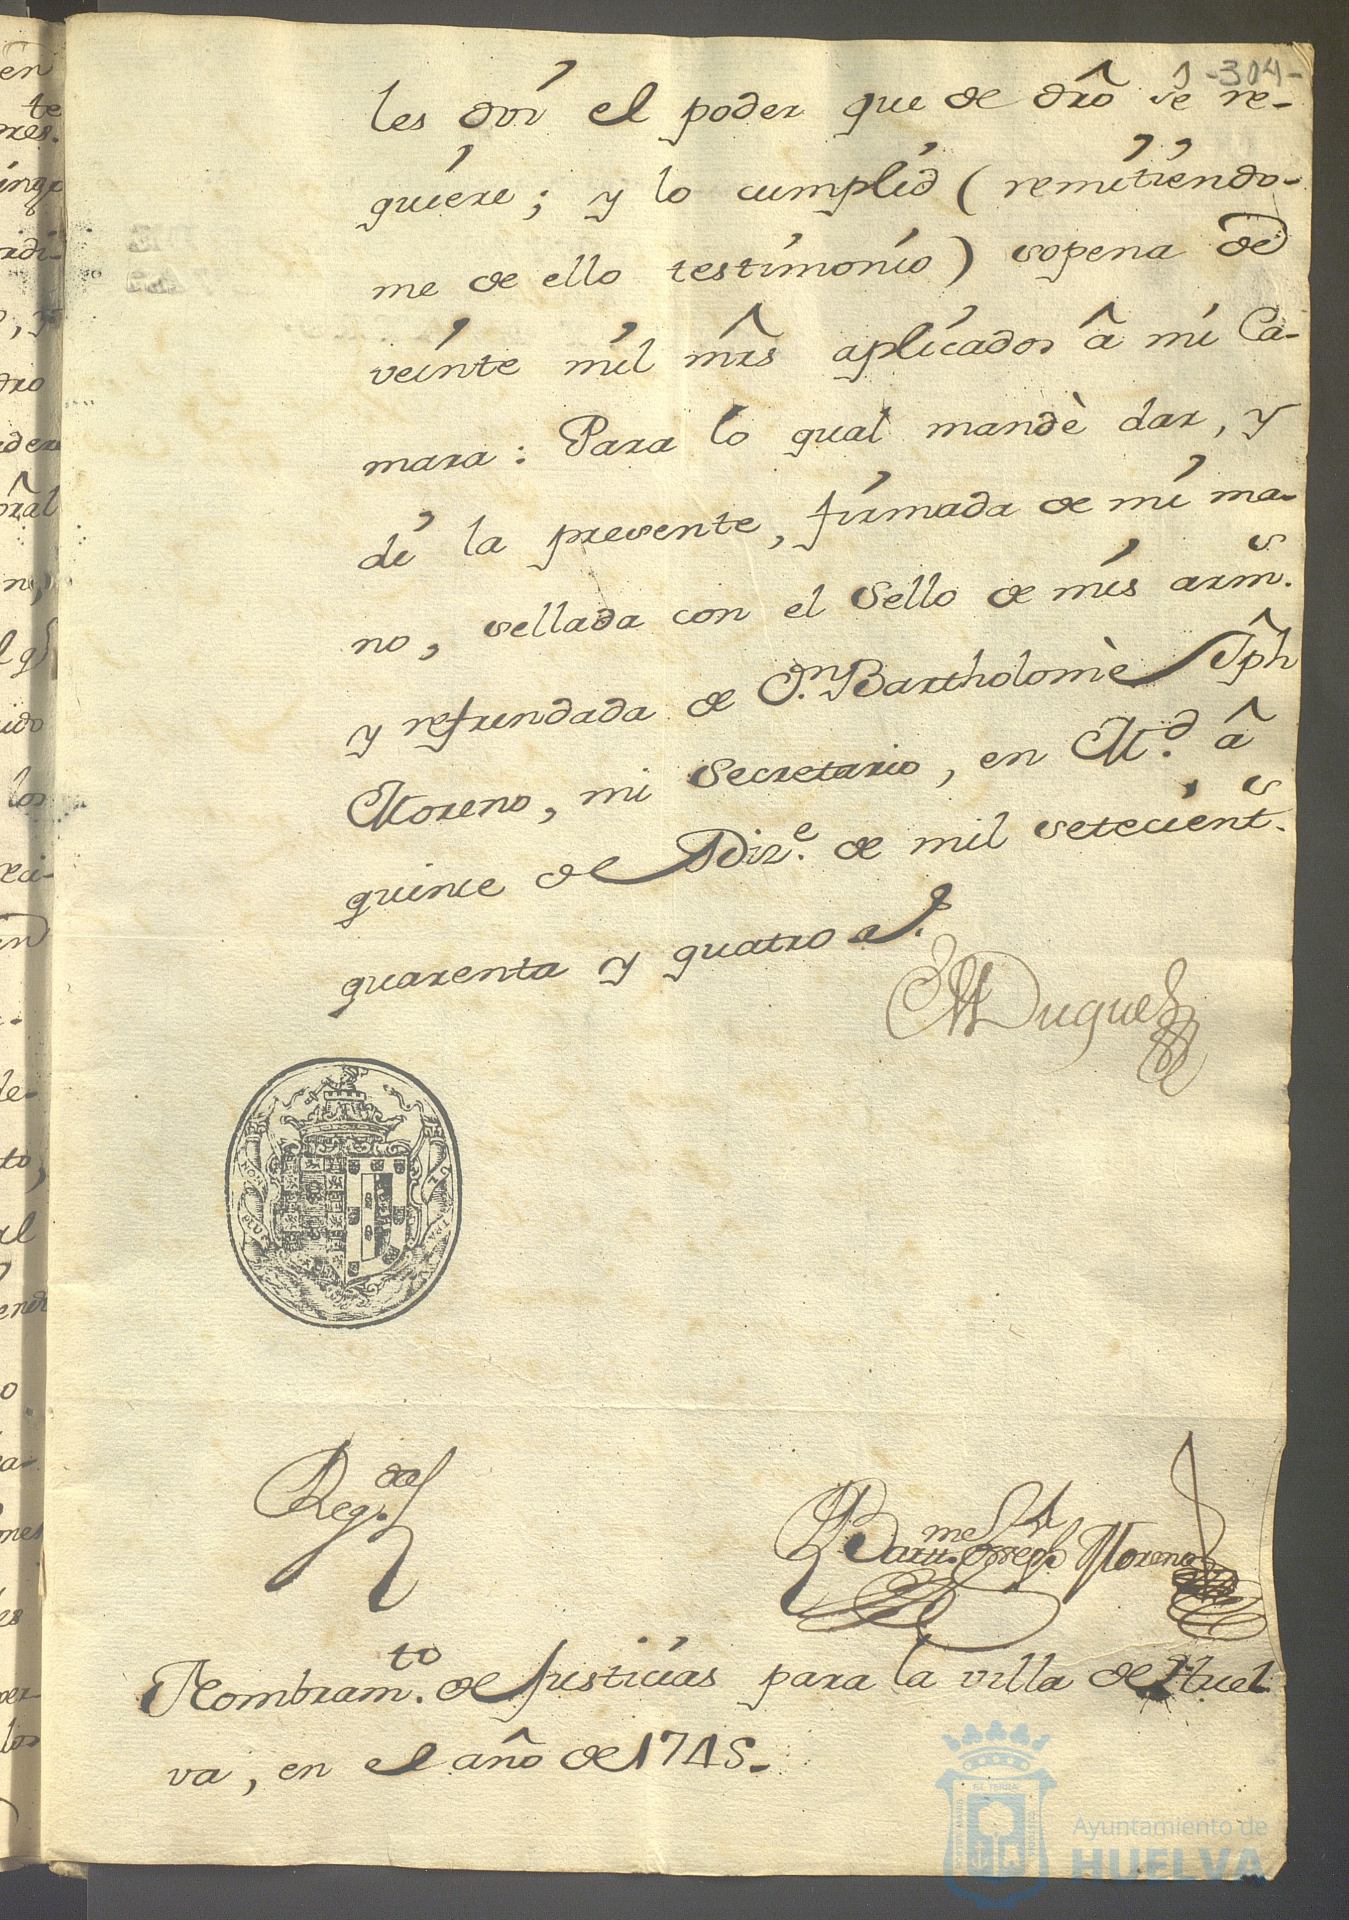 -304-
les doi el poder que de dr̂o se re-
quiere; y lo cumplid (remitiendo-
me de ello testimonio) sopena de
veinte mil mr̂s aplicados â mi Ca-
mara: Para lo qual mandè dar, y
di la presente, firmada de mi ma-
no, sellada con el Sello de mis arm.s
y refrendada de D.n Bartholomè Jp̂h
Moreno, mi Secretario, en M.d â
quinze de Diz.e de mil setecient.s
quarenta y quatro a.s
El Duque
NON
PLUS
UL
TRA
Reg.da
Bartt.me Joseph Moreno
Nombram.to de Justicias para la villa de Huel
va, en el año de 1745.
Ayuntamiento de
HUELVA